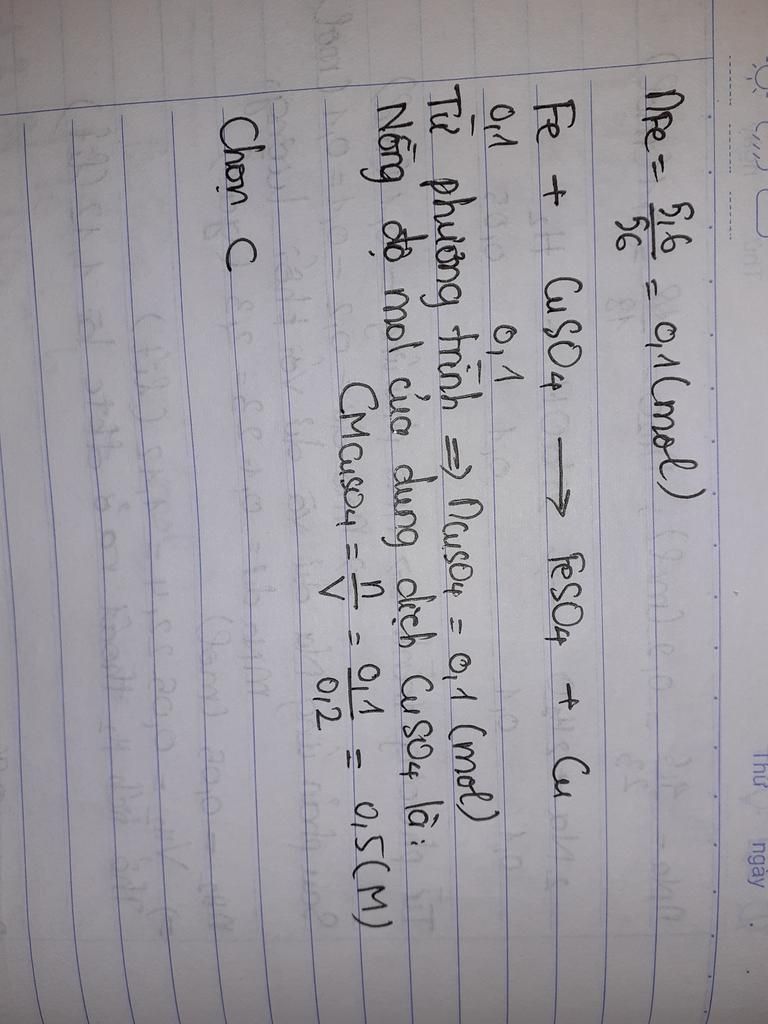 Thứ
ngày
nFe = 5,6/56 = 0,1 (mol)
Fe + CuSO4 → FeSO4 + Cu
0,1 0,1
Từ phương trình => nCuSO4 = 0,1 (mol)
Nồng độ mol của dung dịch CuSO4 là:
CMCuSO4 = n/V = 0,1/0,2 = 0,5 (M)
Chọn C